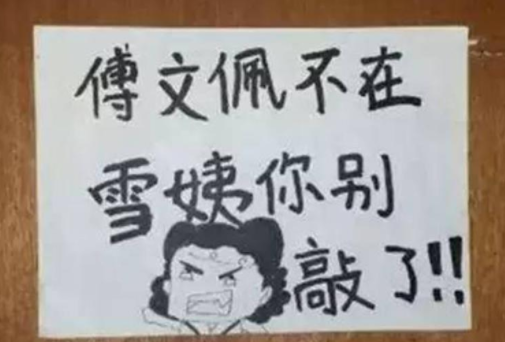 傅文佩不在
雪姨你别
敲了!!